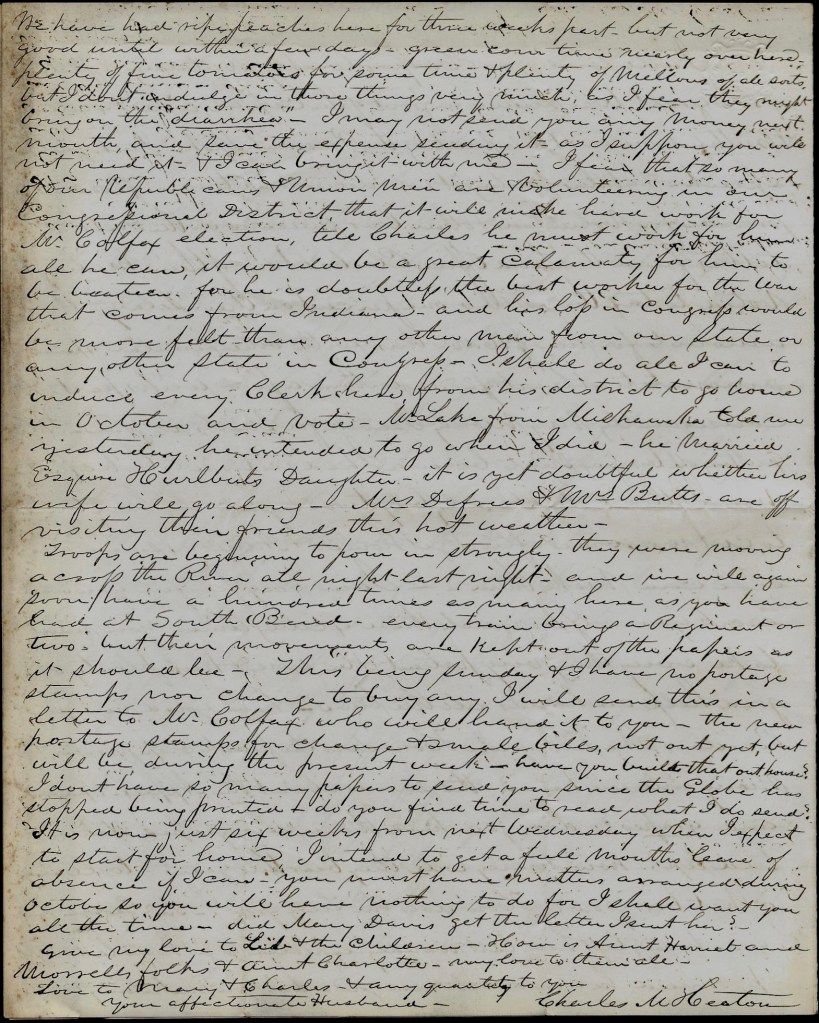 We have had ripe peaches here for three weeks past - but not very
good until within a few days - green corn time nearly over here,
plenty of fine tomatoes for some time & plenty of Mellons of all sorts,
but I dont indulge in those things very much, as I fear they might
bring on the "diarrhea" - I may not send you any Money next
month, and save the expense sending it - as I suppose you will
not need it - & I can bring it with me - I fear that so many
of our Republicans & Union men are Volunteering in our
Congressional District, that it will make hard work for
Mr. Colfax election, tell Charles he must work for him
all he can, it would be a great Calamaty for him to
be beateen. for he is doubtless the best worker for the War
that comes from Indiana - and his loss in Congress would
be more felt than any other man from our State or
any other State in Congress - I shall do all I can to
induce every Clerk here from his district to go home
in October and vote - Mr Lake from Mishawaka told me
yesterday he intended to go when I did - he Married
Esquire Hurlbuts Daughter - it is yet doubtful whether his
wife will go along - Mrs Defrees & Mrs Butts - are off
visiting their friends this hot weather -
Troops are beginning to pour in strongly. they were moving
across the River all night last night - and we will again
soon have a hundred times as many here as you have
had at South Bend - every train brings a Regiment or
two - but their movements are kept out of the papers as
it should be - This being Sunday & I have no postage
stamps nor change to buy any I will send this in a
letter to Mr. Colfax who will hand it to you - the new
postage stamps for change & small bills, not out yet, but
will be during the present week - have you built that out house?
I dont have so many papers to send you since the Globe has
stopped being printed - do you find time to read what I do send?
It is now just six weeks from next Wednesday when I expect
to start for home, I intend to get a full months leave of
absence if I can - you must have matters arranged during
October so you will have nothing to do for I shall want you
all the time - did Mary Davis get the letter I sent her? -
Give my love to Lib & the Children - How is Aunt Harriet and
Morrells folks & Aunt Charlotte - my love to them all -
Love to Mary & Charles - & any quantity to you
your affectionate Husband - Charles M Heaton